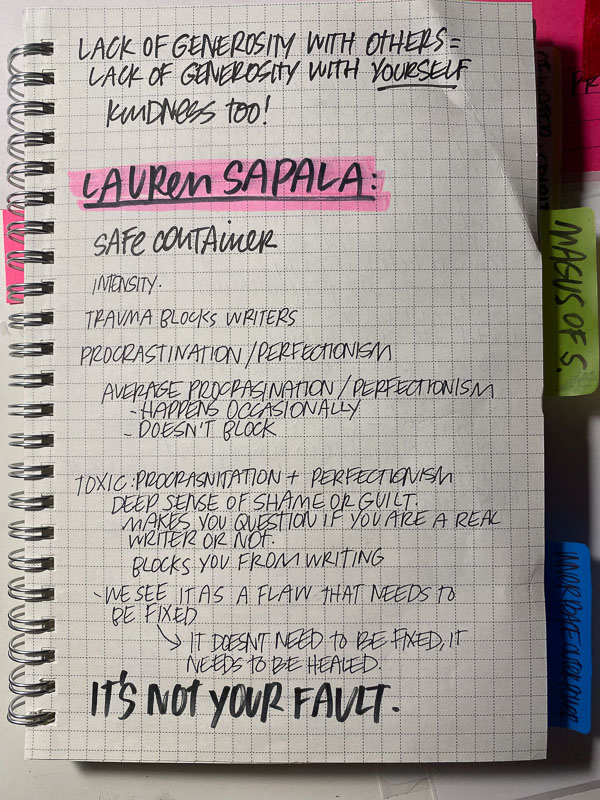 LACK OF GENEROSITY WITH OTHERS =
LACK OF GENEROSITY WITH YOURSELF
KINDNESS TOO!
LAUREN SAPALA:
SAFE CONTAINER
INTENSITY.
TRAUMA BLOCKS WRITERS
PROCRASTINATION / PERFECTIONISM
AVERAGE PROCRASINATION / PERFECTIONISM
- HAPPENS OCCASIONALLY
- DOESN'T BLOCK
TOXIC: PROCRASNITATION + PERFECTIONISM
DEEP SENSE OF SHAME OR GUILT.
MAKES YOU QUESTION IF YOU ARE A REAL
WRITER OR NOT.
BLOCKS YOU FROM WRITING
- WE SEE IT AS A FLAW THAT NEEDS TO
BE FIXED
→ IT DOESNT NEED TO BE FIXED, IT
NEEDS TO BE HEALED.
IT'S NOT YOUR FAULT.
OF S.